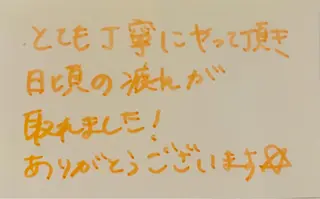 とても丁寧にやって頂き
日頃の疲れが
取れました!
ありがとうございます☆